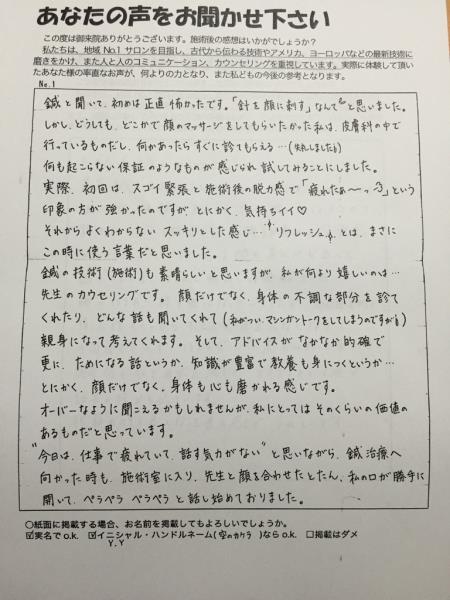 あなたの声をお聞かせ下さい
この度は御来院ありがとうございます。施術後の感想はいかがでしょうか?
私たちは、地域 No.1 サロンを目指し、古代から伝わる技術やアメリカ、ヨーロッパなどの最新技術に
磨きをかけ、また人と人のコミュニケーション、カウンセリングを重視しています。実際に体験して頂い
たあなた様の率直なお声が、何よりの力となり、また私どもの今後の参考となります。
No.1
鍼と聞いて、初めは正直怖かったです。「針を顔に刺す」なんて と思いました。
しかし、どうしても、どこかで顔のマッサージをしてもらいたかった私は、皮膚科の中で
行っているものだし、何かあったらすぐに診てもらえる…(失礼しました)
何も起こらない保証のようなものが感じられ試してみることにしました。
実際、初回は、スゴイ緊張と施術後の脱力感で「疲れたぁ〜っ」という
印象の方が強かったのですが、とにかく、気持ちイイ♡
それからよくわからない スッキリとした感じ…リフレッシュとは、まさに
この時に使う言葉だと思いました。
鍼の技術(施術)も素晴らしいと思いますが、私が何より嬉しいのは…
先生のカウセリングです。顔だけでなく、身体の不調な部分を診て
くれたり、どんな話も聞いてくれて(私がつい、マシンガントークをしてしまうのですが)
親身になって考えてくれます。そして、アドバイスがなかなか的確で
更に、ためになる話というか、知識が豊富で教養も身につくというか…
とにかく、顔だけでなく、身体も心も磨かれる感じです。
オーバーなように聞こえるかもしれませんが、私にとっては そのくらいの価値の
あるものだと思っています。
"今日は、仕事で疲れていて、話す気力がない"と思いながら、鍼治療へ
向かった時も、施術室に入り、先生と顔を合わせたとたん、私の口が勝手に
開いて、ペラペラ ペラペラと話し始めておりました。
○紙面に掲載する場合、お名前を掲載してもよろしいでしょうか。
☑実名で o.k. ☑イニシャル・ハンドルネーム(空のカケラ)なら o.k. □掲載はダメ
Y.Y